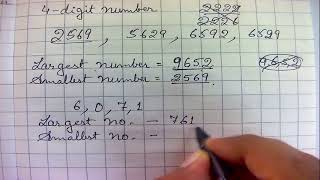 4-digit number 2222
2226
2569, 5629, 6592, 6599
Largest number = 9652
Smallest number = 2569
6, 0, 7, 1
Largest no. - 761
Smallest no. -